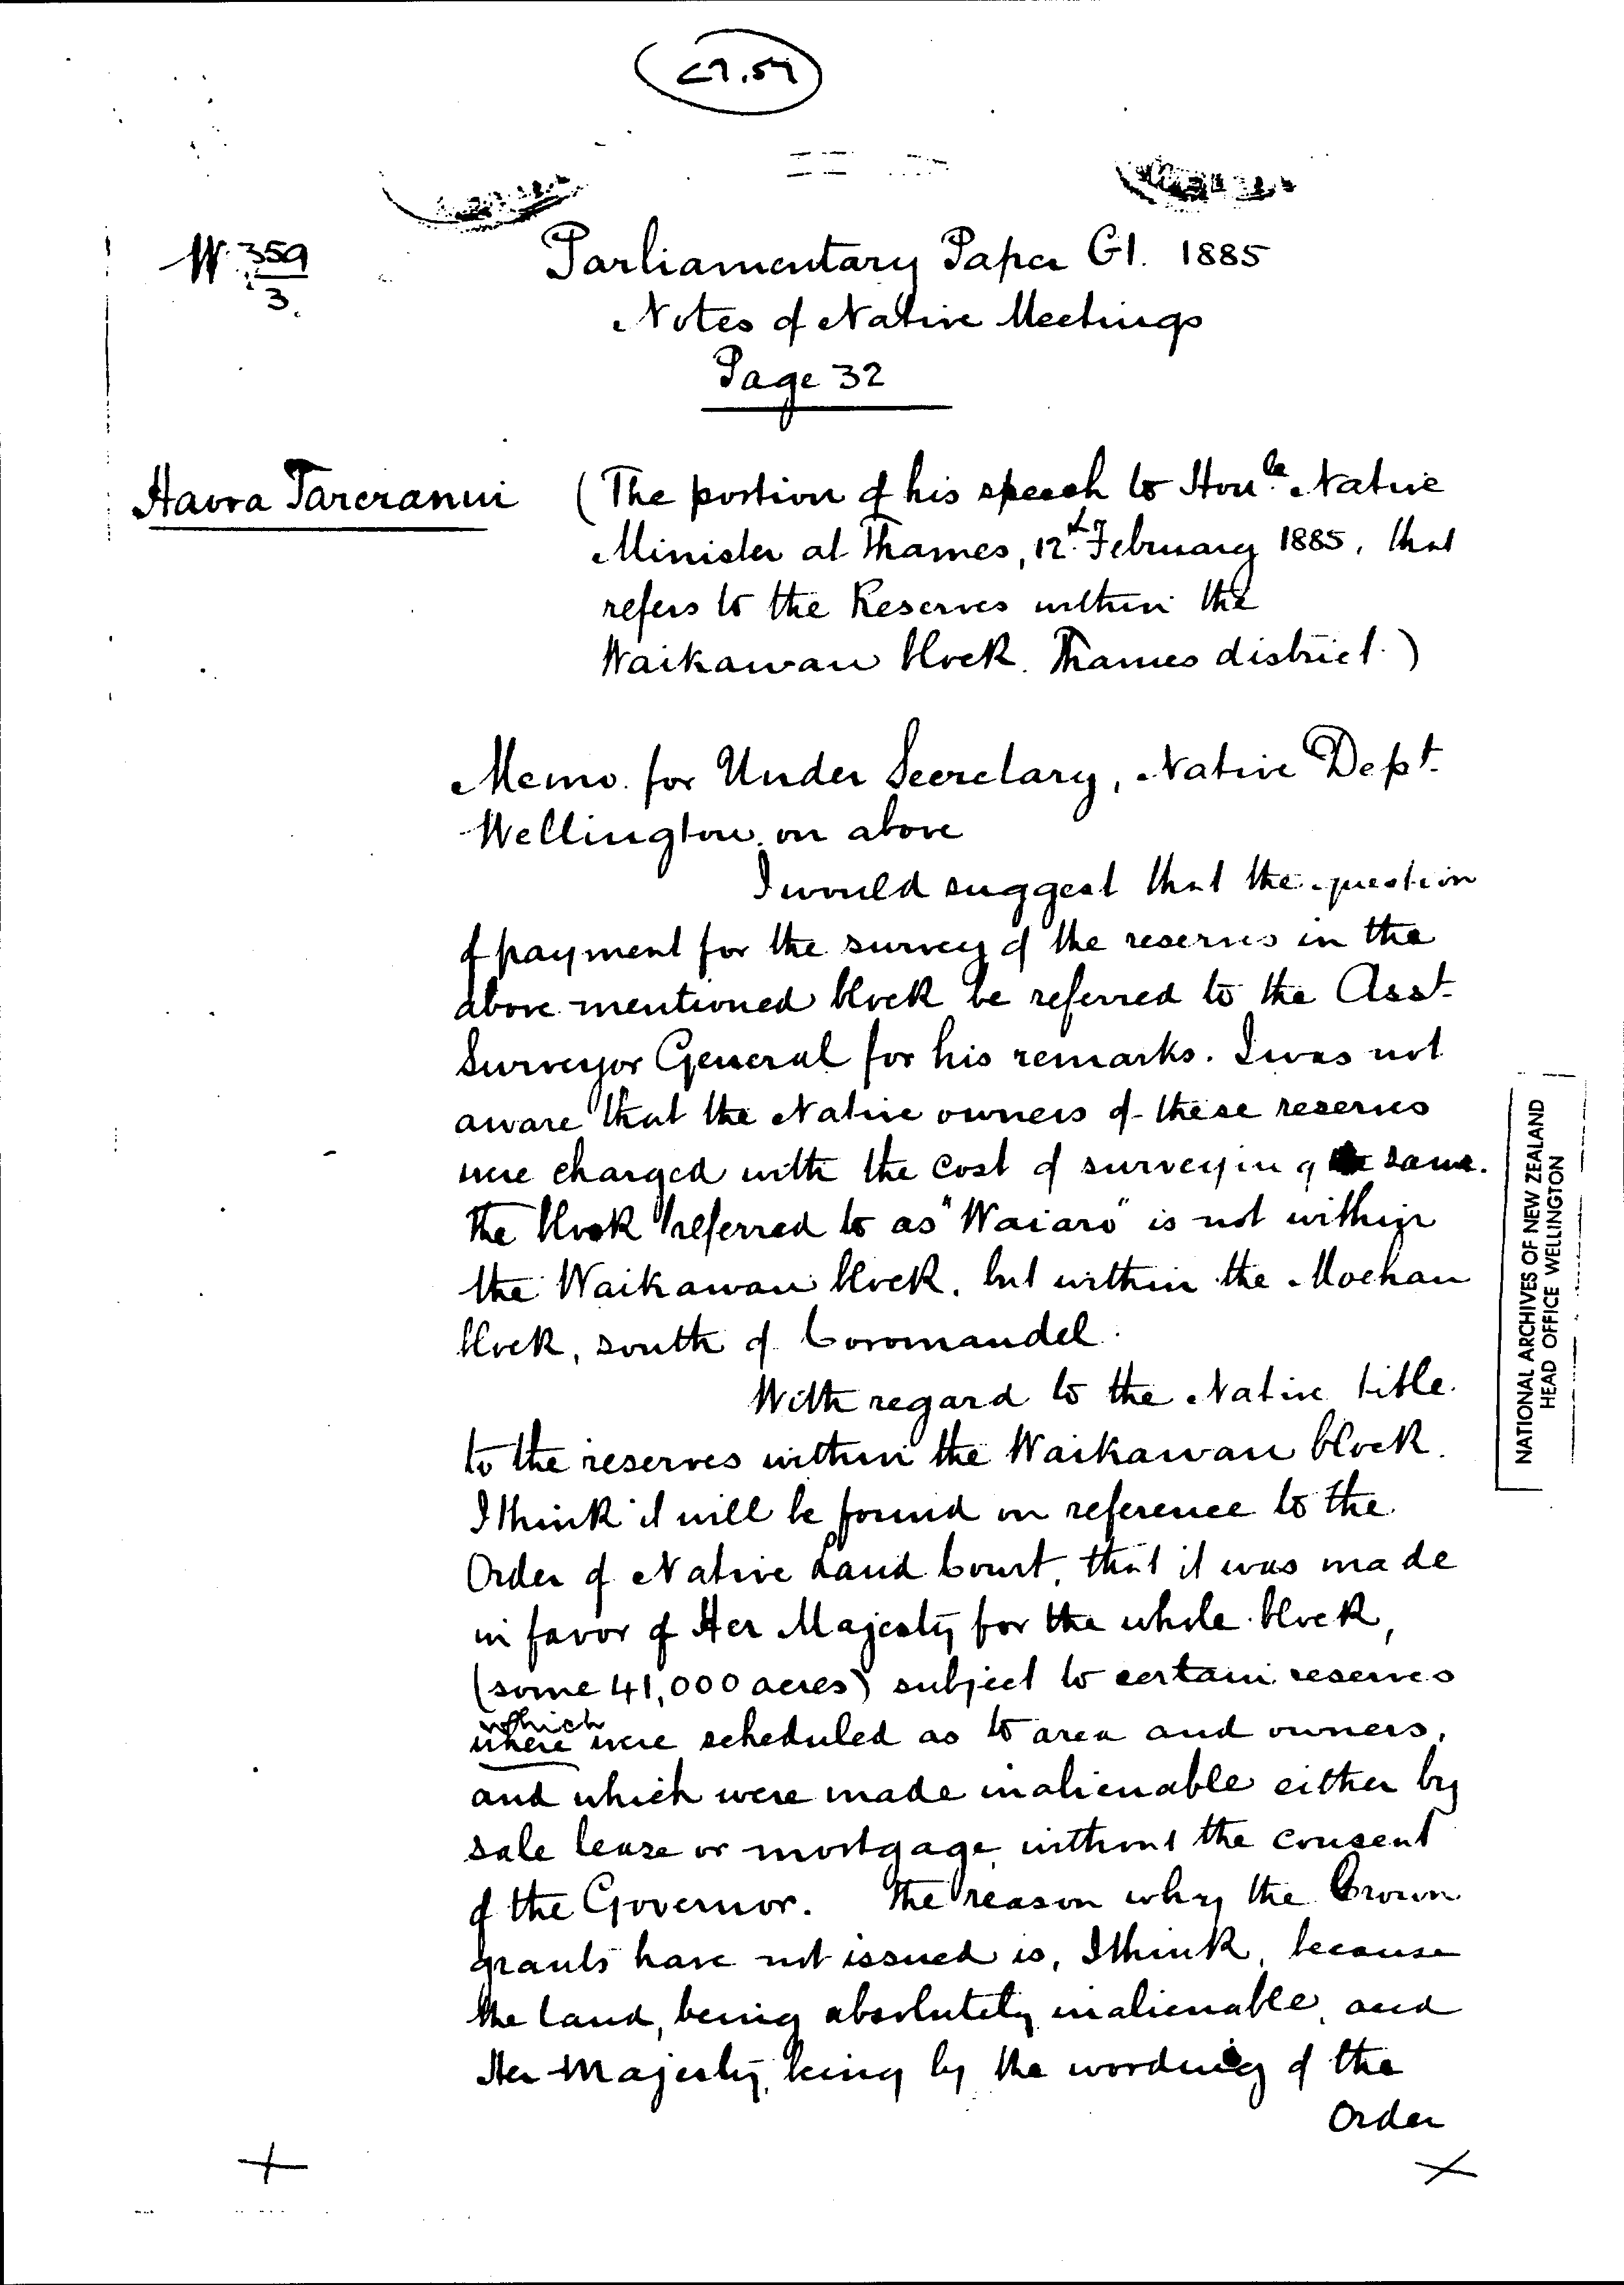 W. 359
3.
Parliamentary Paper G1. 1885
Notes of Native Meetings
Page 32
Haora Tareranui
(The portion of his speech to Honble Native
Minister at Thames, 12th February 1885, that
refers to the Reserves within the
Waikawau block. Thames district.)
Memo. for Under Secretary, Native Dept.
Wellington, on above
I would suggest that the question
of payment for the survey of the reserves in the
above mentioned block be referred to the Asst.
Surveyor General for his remarks. I was not
aware that the Native owners of these reserves
were charged with the cost of surveying same.
The block referred to as "Waiaro" is not within
the Waikawau block, but within the Moehau
block, south of Coromandel.
With regard to the Native title
to the reserves within the Waikawau block.
I think it will be found on reference to the
Order of Native Land Court, that it was made
in favor of Her Majesty for the whole block,
(some 41,000 acres) subject to certain reserves
which
where were scheduled as to area and owners,
and which were made inalienable either by
sale lease or mortgage, without the consent
of the Governor. The reason why the Crown
grants have not issued is, I think, because
the land, being absolutely inalienable, and
Her Majesty, being by the wording of the
Order
NATIONAL ARCHIVES OF NEW ZEALAND
HEAD OFFICE WELLINGTON